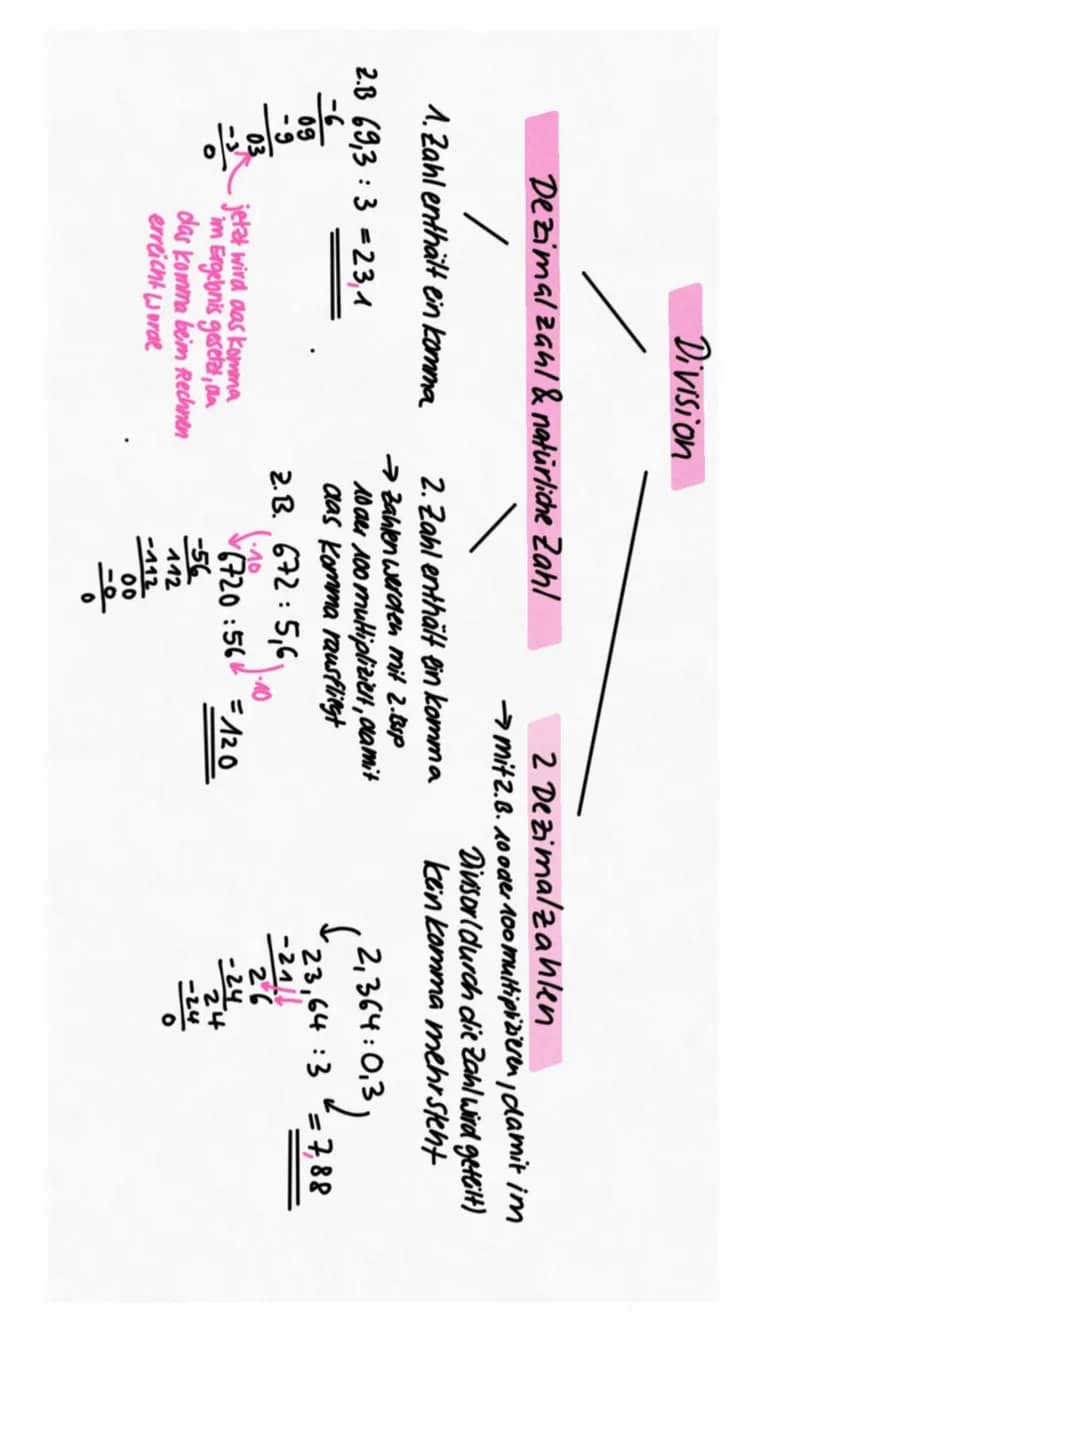 Division
Dezimalzahl & natürliche Zahl
1. Zahl enthält ein Komma
z.B 69,3 : 3 = 23,1
-6
09
-9
03
-3
0
jetzt wird das Komma
im Ergebnis gesetzt, da
das Komma beim Rechnen
erreicht wurde
2. Zahl enthält ein Komma
→ Zahlen werden mit z.Bsp
10 der 100 multipliziert, damit
das Komma rausfliegt
z.B. 672 : 5,6
·10 ·10
6720 : 56 = 120
-56
112
-112
00
-0
0
2 Dezimalzahlen
→ mit z.B. 10 oder 100 multiplizieren, damit im
Divisor (durch die Zahl wird geteilt)
kein Komma mehr steht
2,364 : 0,3
23,64 : 3 = 7,88
-21
26
-24
24
-24
0